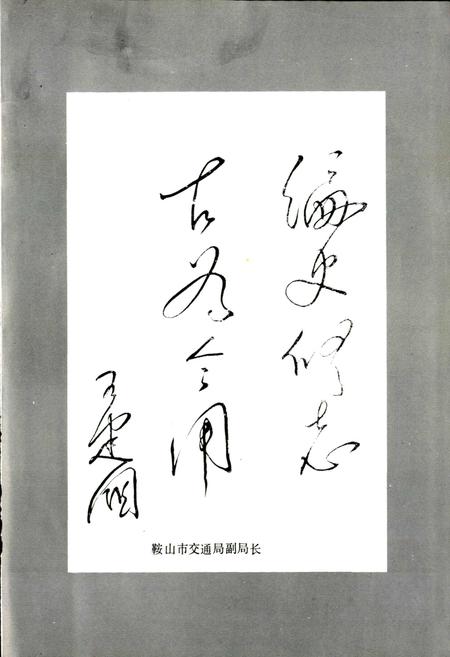 编史修志
古为今用
王忠阁
鞍山市交通局副局长